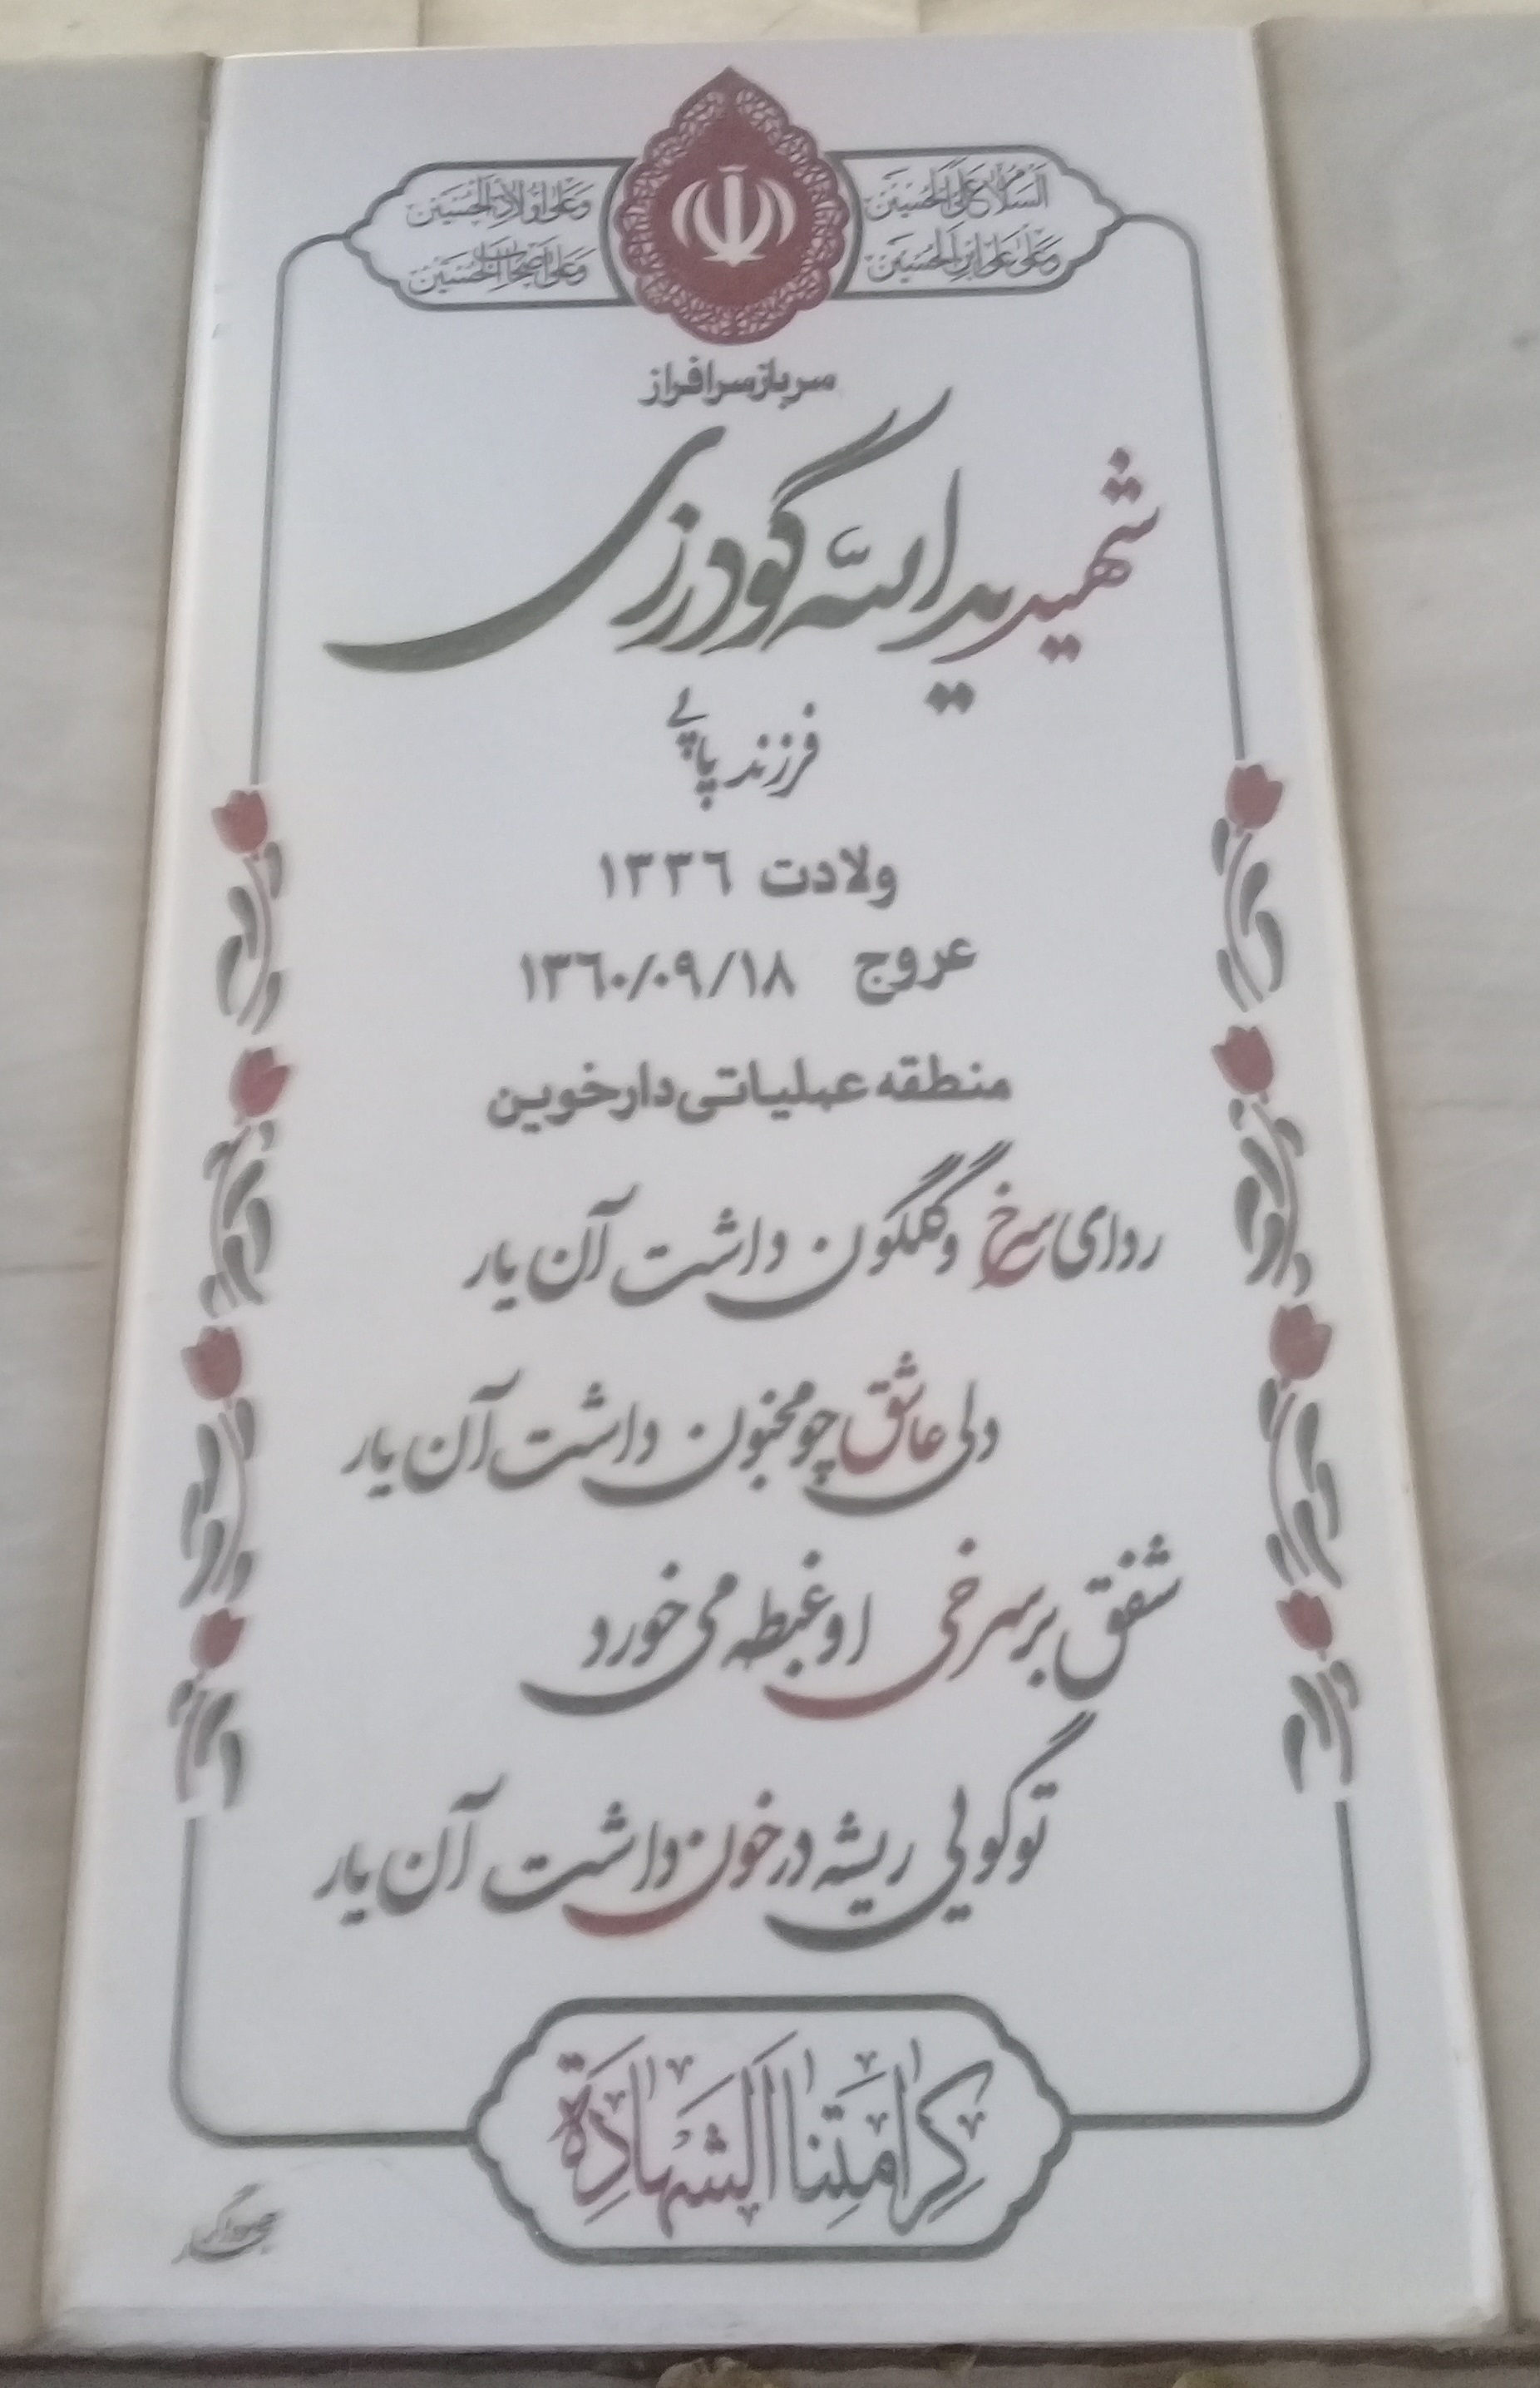 السَّلامُ عَلَی الْحُسَیْن
وَعَلی عَلیِّ ابْنِ الْحُسَیْن
وَعَلی اَوْلادِ الْحُسَیْن
وَعَلی اَصْحابِ الْحُسَیْن
سرباز سرافراز
شهید یدالله گودرزی
فرزند پاپی
ولادت ۱۳۳۶
عروج ۱۳۶۰/۰۹/۱۸
منطقه عملیاتی دارخوین
ردای سرخ و گلگون داشت آن یار
دلی عاشق چو مجنون داشت آن یار
شفق بر سرخی او غبطه می خورد
تو گویی ریشه در خون داشت آن یار
کَرامَتُنَا الشَّهادَة